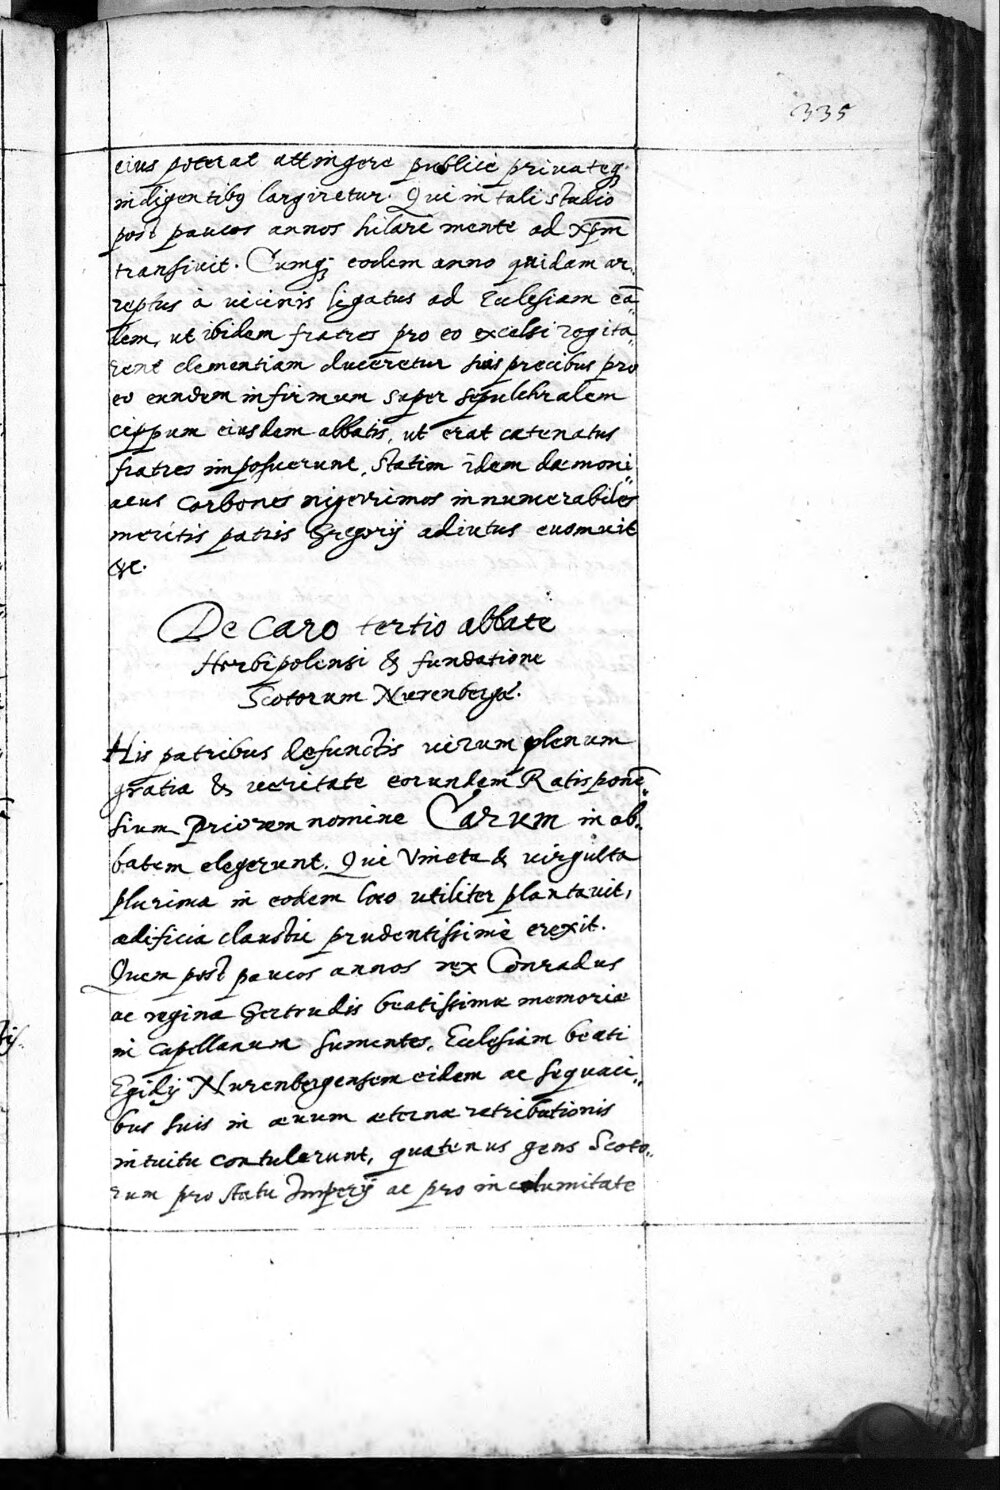 335
eius poterat attingere publicè priuateq;
indigentibꝰ largiretur. Qui in tali studio
post paucos annos hilare mente ad xp̄m
transiuit. Cumq; eodem anno quidam ar„
reptus à vicinis ligatus ad Ecclesiam eā„
dem, ut ibidem fratres pro eo excelsi rogita„
rent clementiam duceretur suis precibus pro
eo eundem infirmum super sepulchralem
cippum eiusdem abbatis, ut erat catenatus
fratres imposuerunt, statim idem dæmoni„
acus carbones nigerrimos innumerabiles
meritis patris Gregorij adiutus euomuit
&c.
De Caro tertio abbate
Herbipolensi & fundatione
Scotorum Nurenbergæ.
His patribus defunctis virum plenum
gratia & veritate eorundem Ratisponē„
sium Priorem nomine Carum in ab„
batem elegerunt. Qui Vineta & virgulta
plurima in eodem loco utiliter plantauit,
ædificia claustri prudentissimè erexit.
Quem post paucos annos rex Conradus
ac regina Gertrudis beatissimæ memoriæ
in capellanum sumentes, Ecclesiam beati
Egidij Nurenbergensem eidem ac sequaci„
bus suis in æuum æternæ retributionis
intuitu contulerunt, quatenus gens Scoto„
rum pro statu Imperij ac pro incolumitate